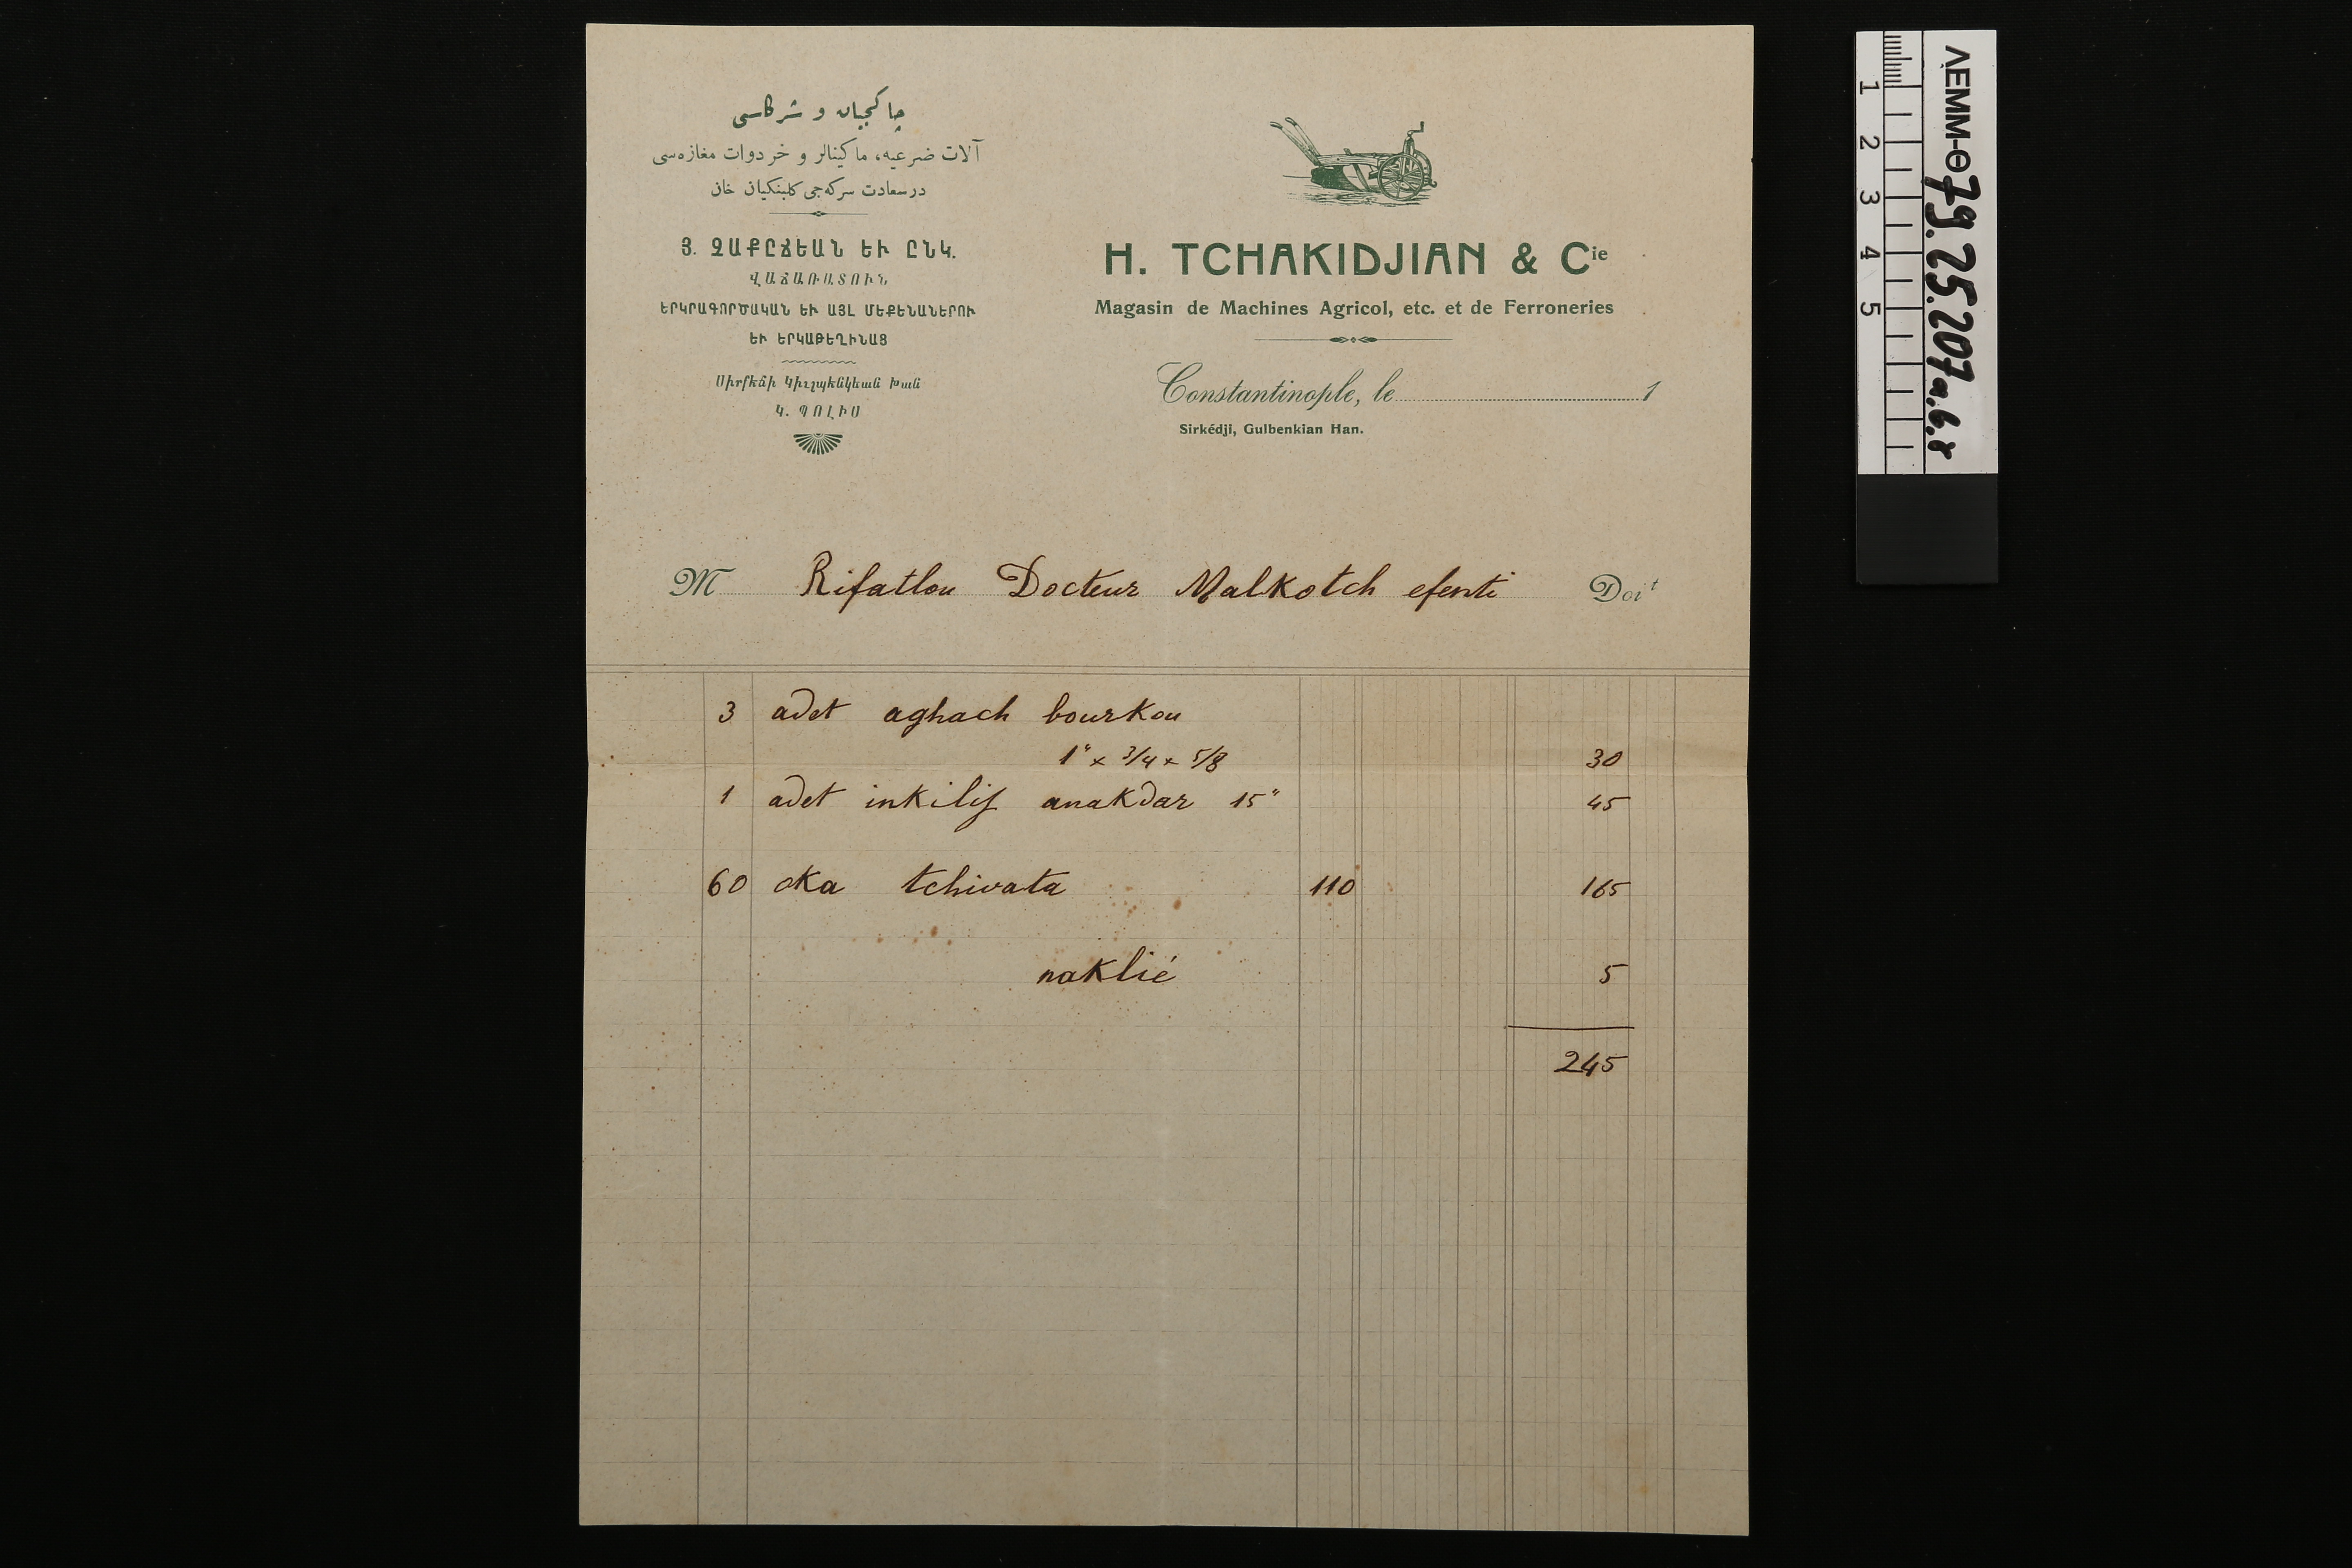 چاكجيان و شركاسى
آلات ضرعيه، ماكينالر و خردوات مغازه‌سى
درسعادت سركه‌جى كلبنكيان خان
Յ. ՉԱՔԸՃԵԱՆ ԵՒ ԸՆԿ.
ՎԱՃԱՌԱՏՈՒՆ
ԵՐԿՐԱԳՈՐԾԱԿԱՆ ԵՒ ԱՅԼ ՄԵՔԵՆԱՆԵՐՈՒ
ԵՒ ԵՐԿԱԹԵՂԻՆԱՑ
Կիւլպէնկեան Խան
Կ. ՊՈԼԻՍ
H. TCHAKIDJIAN & Cie
Magasin de Machines Agricol, etc. et de Ferroneries
Constantinople, le 1
Sirkédji, Gulbenkian Han.
M Rifatlou Docteur Malkotch efenti Doit
3 adet aghach bourkou
1" x 3/4 x 5/8 30
1 adet inkilis anakdar 15" 45
60 oka tchivata 110 165
naklié 5
245
ΛΕΜΜ-Θ 79.25.207α.β.γ
1 2 3 4 5